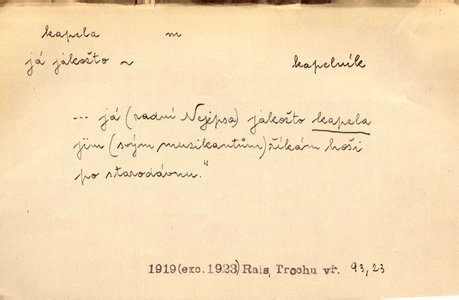 kapela m
já jakožto ~ kapelník
... já (radní Nejepsa) jakožto kapela
jim (svým muzikantům) říkám hoši
po starodávnu."
1919(exc. 1923) Rais, Trochu vř. 93,23